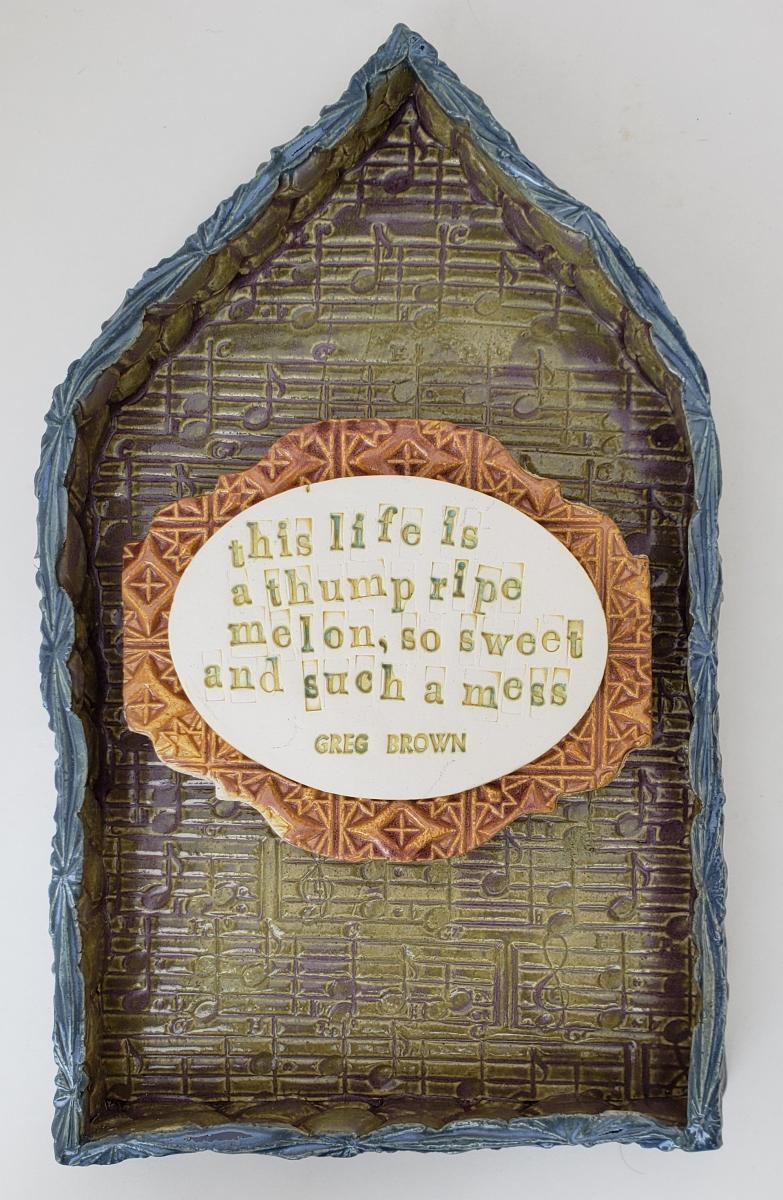 this life is
a thump ripe
melon, so sweet
and such a mess
GREG BROWN